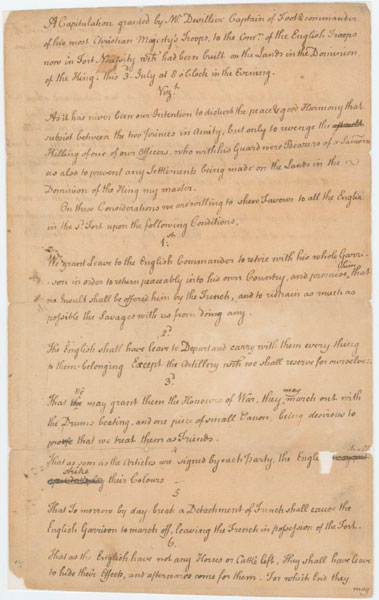 A Capitulation granted by Mr. Dwillier Captain of Foot & commander
of his most Christian Majesty's Troops, to the Comr. of the English Troops
now in Fort Necessity wch. had been built on the Lands in the Dominion
of the King: this 3 July at 8 o'Clock in the Evening.
Vizt.
As it has never been our Intention to disturb the peace & good Harmony that
subsist between the two Princes in Amity, but only to revenge the
Killing of one of our Officers, who with his Guard were Bearers of a Sumon
as also to prevent any Settlements being made on the Lands in the
Dominion of the King my master.
On these Considerations we are willing to shew Favour to all the English
in the sd. Fort upon the following Conditions.
1st.
We grant Leave to the English Commander to retire with his whole Garri-
son in order to return peaceably into his own Country, and promise him that
no Insult shall be offered him by the French, and to restrain as much as
possible the Savages with us from doing any.
2d
The English shall have leave to Depart and carry with them every thing
to them belonging Except the Artillery wch. we shall reserve for ourselves.
3d
That we may grant them the Honours of War, they may march out with
the Drums beating, and one piece of small Canon, being desirous to
prove that we treat them as Friends.
That as soon as the Articles are signed by each Party, the English shall
strike their Colours
5
That To morrow by day-break a Detachment of French shall cause the
English Garrison to march off, leaving the French in possession of the Fort.
6.
That as the English have not any Horses or Cattle left, They shall have leave
to hide their Effects, and afterwards come for them. For which End they
may